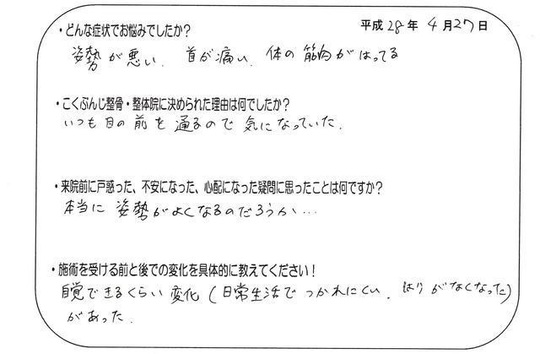 平成28年4月27日
・どんな症状でお悩みでしたか?
姿勢が悪い、首が痛い、体の筋肉がはってる
・こくぶんじ整骨・整体院に決められた理由は何でしたか?
いつも目の前を通るので気になっていた.
・来院前に戸惑った、不安になった、心配になった疑問に思ったことは何ですか?
本当に姿勢がよくなるのだろうか…
・施術を受ける前と後での変化を具体的に教えてください!
自覚できるくらい変化(日常生活でつかれにくい、はりがなくなった)
があった.